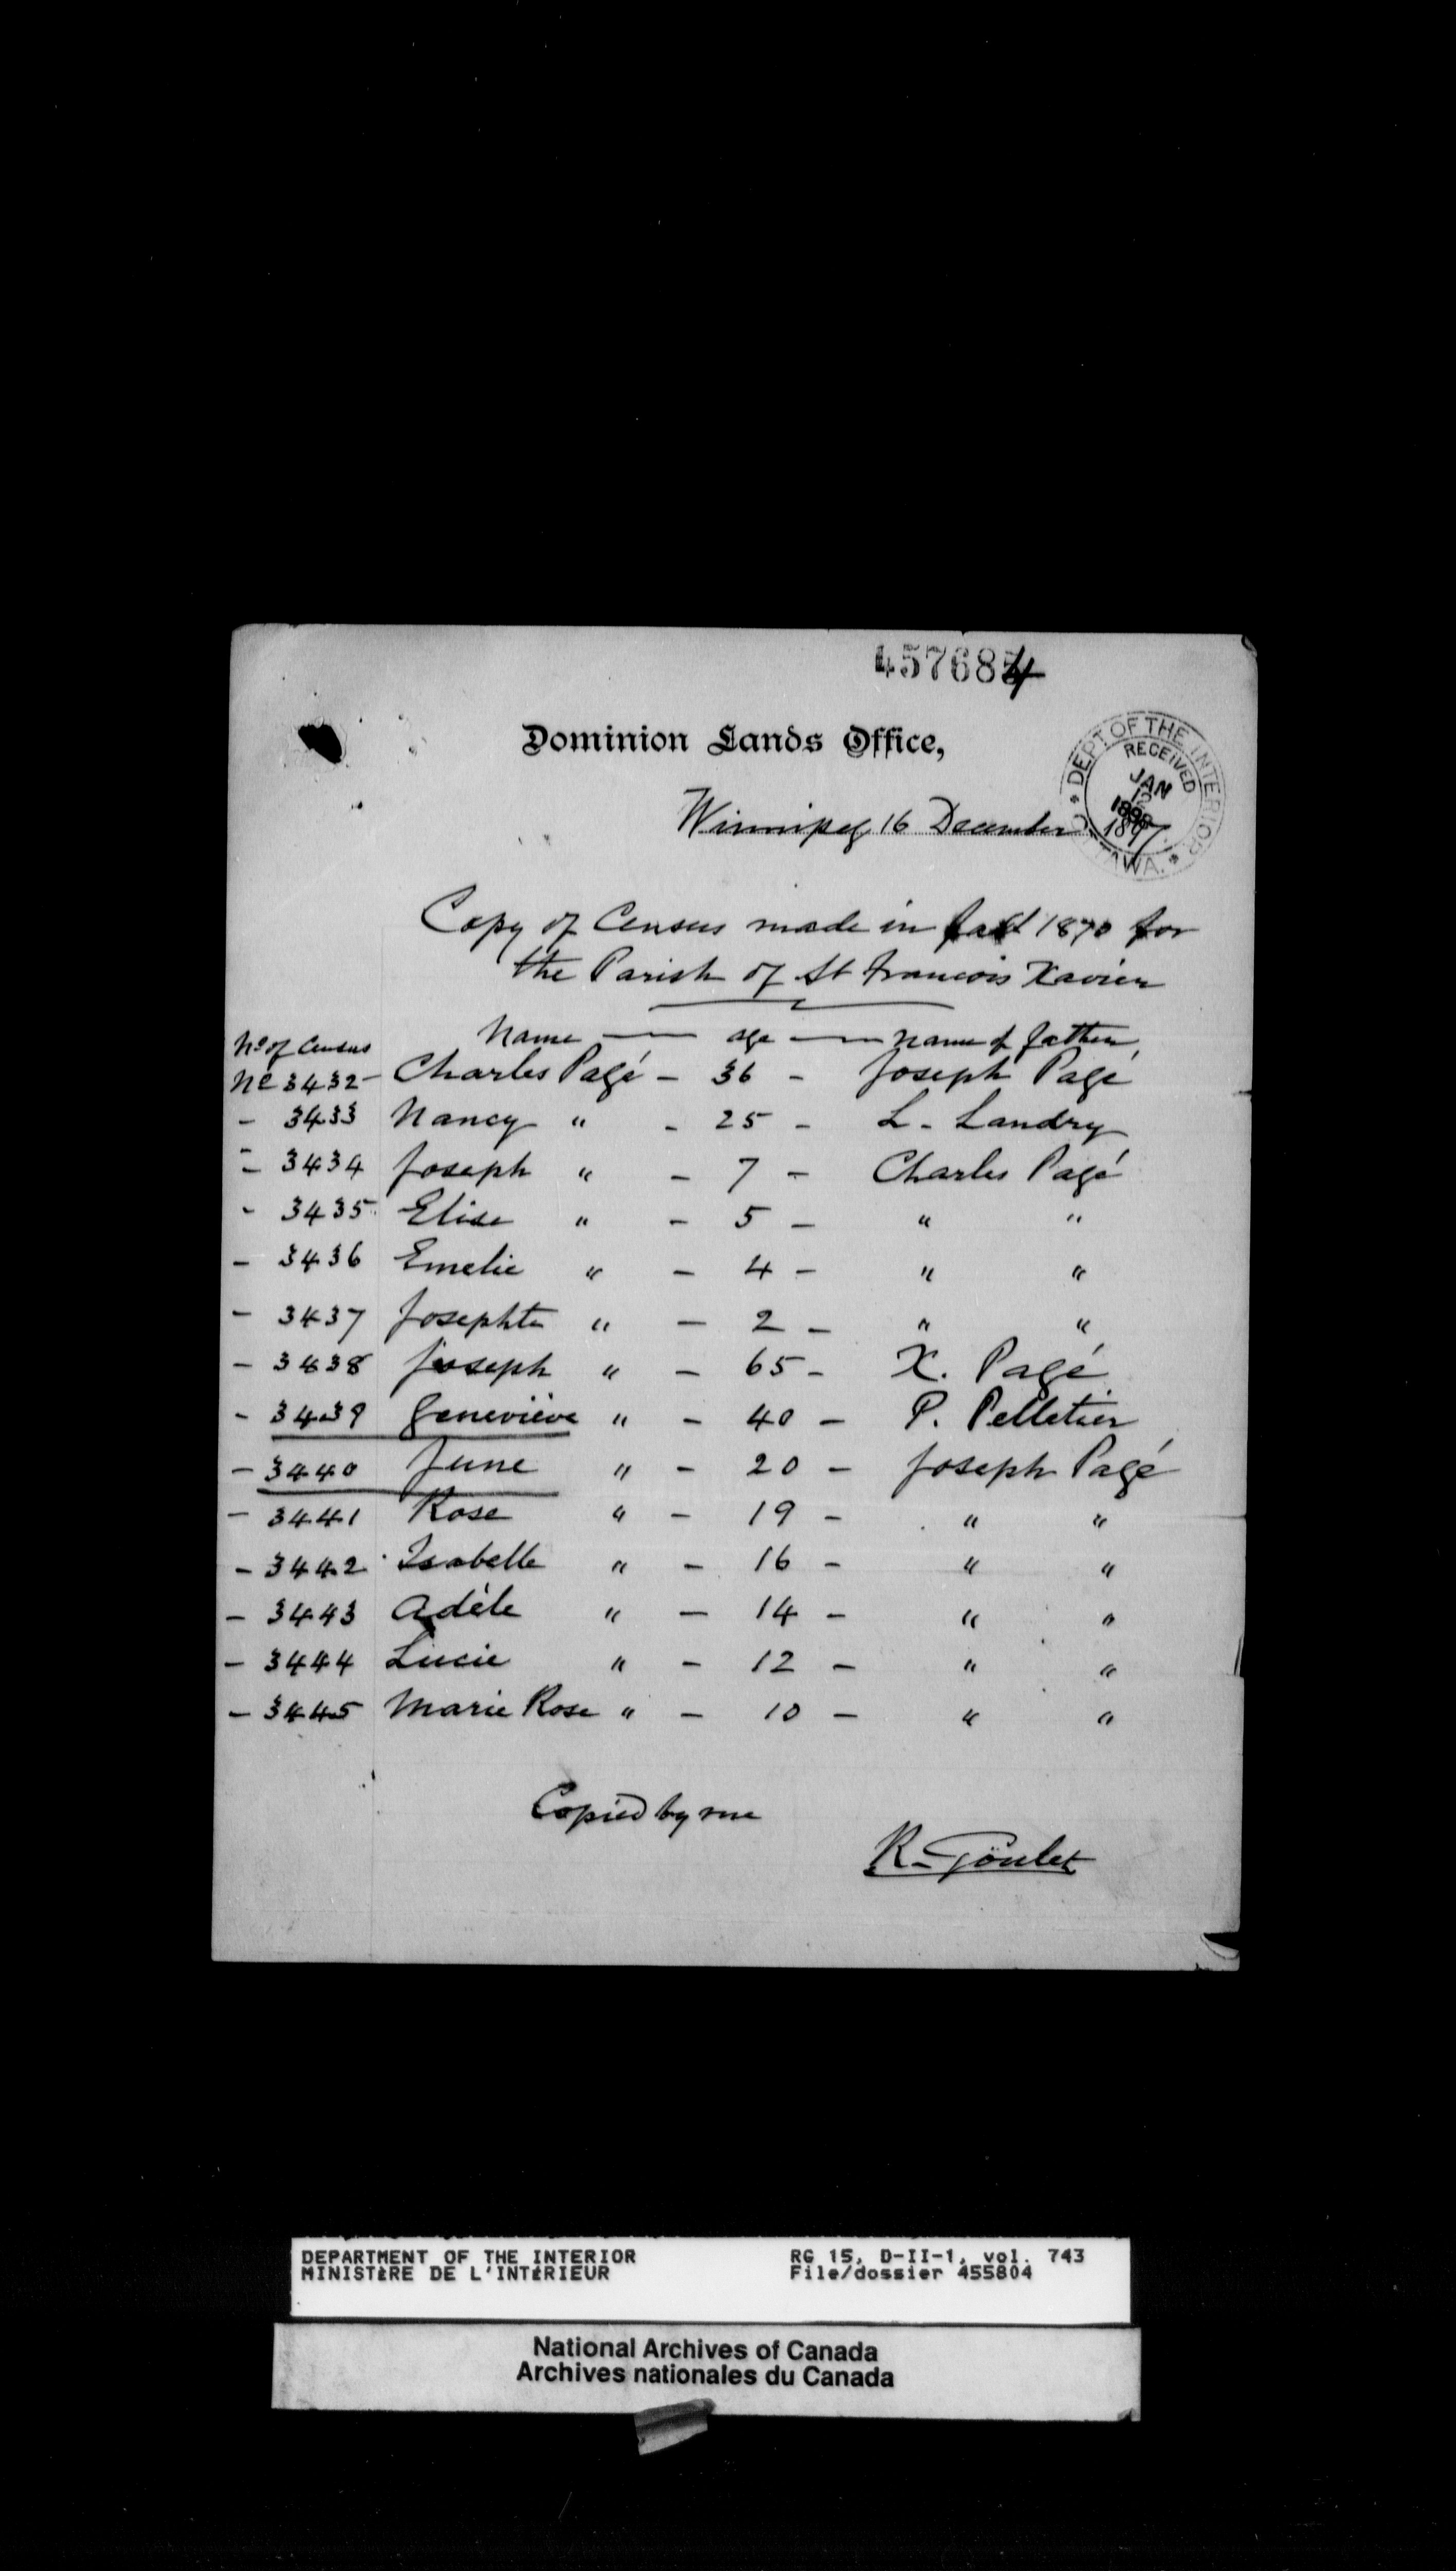 457684
Dominion Lands Office,
DEPT OF THE INTERIOR
RECEIVED
JAN
12
1898
OTTAWA.
Winnipeg 16 December 1897.
Copy of Census made in fall 1870 for
the Parish of St Francois Xavier
No of Census Name — age — name of father
No 3432 - Charles Pagé - 36 - Joseph Pagé
- 3433 Nancy " - 25 - L. Landry
- 3434 Joseph " - 7 - Charles Pagé
- 3435 Elise " - 5 - " "
- 3436 Emelie " - 4 - " "
- 3437 Josephte " - 2 - " "
- 3438 Joseph " - 65 - X. Pagé
- 3439 Geneviève " - 40 - P. Pelletier
- 3440 June " - 20 - Joseph Pagé
- 3441 Rose " - 19 - " "
- 3442 Isabelle " - 16 - " "
- 3443 Adèle " - 14 - " "
- 3444 Lucie " - 12 - " "
- 3445 Marie Rose " - 10 - " "
Copied by me
R. Goulet
DEPARTMENT OF THE INTERIOR RG 15, D-II-1, vol. 743
MINISTÈRE DE L'INTÉRIEUR File/dossier 455804
National Archives of Canada
Archives nationales du Canada